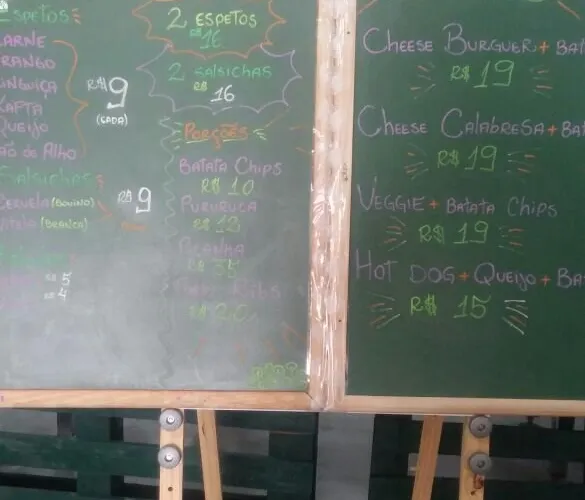 Espetos:
CARNE
FRANGO
LINGUIÇA
KAFTA
QUEIJO
PÃO de Alho
R$ 9
(CADA)
SALSICHAS:
(BOVINO)
(BRANCA)
R$ 9
R$ 5
R$ 4
2 ESPETOS
R$ 16
2 SALSICHAS
R$ 16
PORÇÕES
BATATA CHIPS
R$ 10
PURURUCA
R$ 12
PICANHA
R$ 35
CHEESE BURGUER + BAT
R$ 19
CHEESE CALABRESA + BAT
R$ 19
VEGGIE + BATATA CHIPS
R$ 19
HOT DOG + QUEIJO + BA
R$ 15